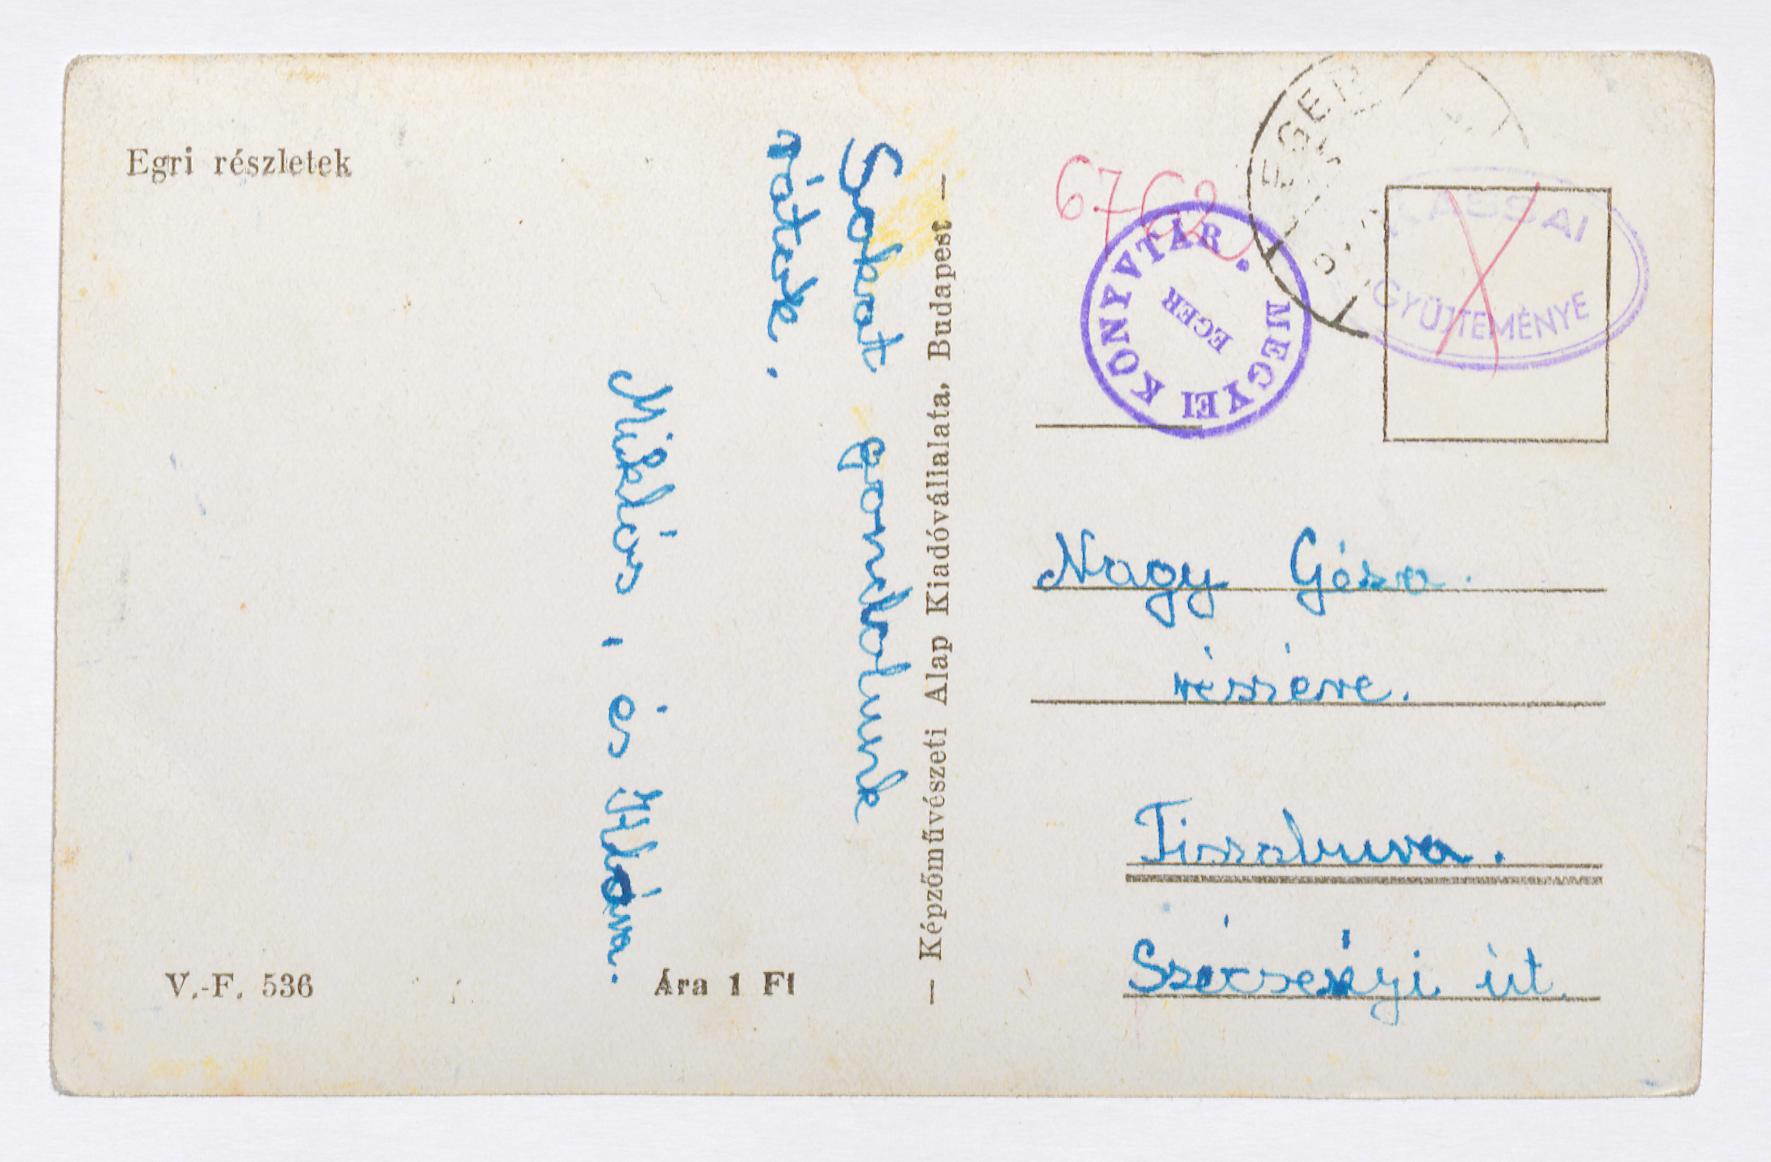 Egri részletek
Sokat gondolunk
rátok.
Miklós, és Ildóna.
V.-F. 536
Ára 1 Ft
— Képzőművészeti Alap Kiadóvállalata, Budapest —
6762
EGER
MEGYEI KÖNYVTÁR •
EGER
KASSAI
GYŰJTEMÉNYE
Nagy Géza.
részére.
Tiszabura.
Szécsenyi út.